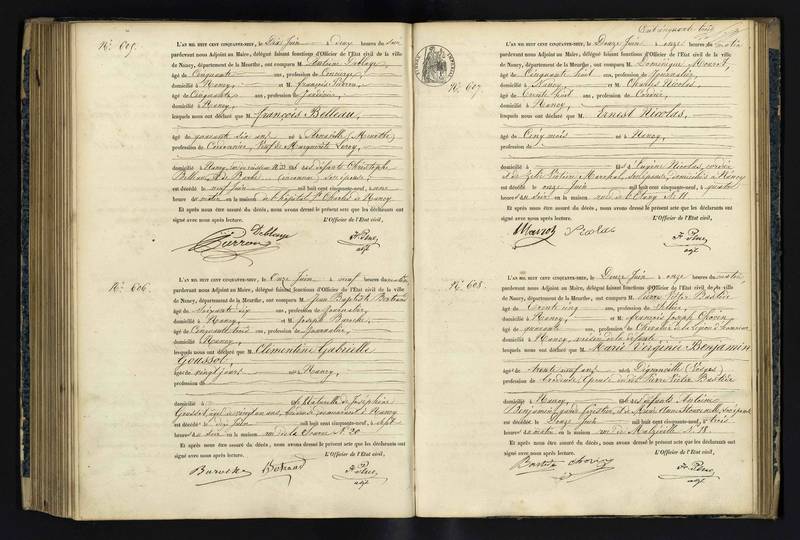 N°. 605.
L'AN MIL HUIT CENT CINQUANTE-NEUF, le Dix Juin à deux heures du soir
pardevant nous Adjoint au Maire, délégué faisant fonctions d'Officier de l'Etat civil de la ville
de Nancy, département de la Meurthe, ont comparu M. Antoine
âgé de Cinquante ans, profession de Concierge,
domicilié à Nancy, et M. François Pierron,
âgé de Cinquante ans, profession de
domicilié à Nancy,
lesquels nous ont déclaré que M. François Belleau,
âgé de quarante six ans né à (Meurthe)
profession de Cordonnier, Veuf de Marguerite Leroy,
domicilié à Nancy, N. 33 fils des défunts Christophe
Belleau, et de Barbe son épouse;
est décédé le neuf Juin mil huit cent cinquante-neuf, à onze
heures du matin en la maison de l'hôpital St Charles à Nancy
Et après nous être assuré du décès, nous avons dressé le présent acte que les déclarants ont
signé avec nous après lecture. L'Officier de l'Etat civil,
Pierron
adjt
N°. 606.
L'AN MIL HUIT CENT CINQUANTE-NEUF, le Onze Juin à neuf heures du matin,
pardevant nous Adjoint au Maire, délégué faisant fonctions d'Officier de l'Etat civil de la ville
de Nancy, département de la Meurthe, ont comparu M. Jean Baptiste Bertrand
âgé de Soixante six ans, profession de Journalier,
domicilié à Nancy, et M. Joseph
âgé de Cinquante trois ans, profession de Journalier,
domicilié à Nancy,
lesquels nous ont déclaré que M. Clémentine Gabrielle
Goussot,
âgé de vingt jours né à Nancy,
profession de
domicilié à fille Naturelle de Joséphine
Goussot, âgée de vingt un ans, demeurant à Nancy
est décédé le dix Juin mil huit cent cinquante-neuf, à sept
heures du soir en la maison rue de la Source N. 20
Et après nous être assuré du décès, nous avons dressé le présent acte que les déclarants ont
signé avec nous après lecture. L'Officier de l'Etat civil,
adjt
Cent cinquante trois
N°. 607.
L'AN MIL HUIT CENT CINQUANTE-NEUF, le Douze Juin à onze heures du matin
pardevant nous Adjoint au Maire, délégué faisant fonctions d'Officier de l'Etat civil de la ville
de Nancy, département de la Meurthe, ont comparu M. Dominique
âgé de Cinquante huit ans, profession de Journalier,
domicilié à Nancy et M. Charles Nicolas,
âgé de Trente huit ans, profession de Cordier,
domicilié à Nancy,
lesquels nous ont déclaré que M. Ernest Nicolas,
âgé de Cinq mois né à Nancy,
profession de
domicilié à fils d'Eugène Nicolas, cordier
et de Victoire Maréchal, son épouse, domiciliés à Nancy
est décédé le onze Juin mil huit cent cinquante-neuf, à quatre
heures du soir en la maison rue de l'Etang N. 11.
Et après nous être assuré du décès, nous avons dressé le présent acte que les déclarants ont
signé avec nous après lecture. L'Officier de l'Etat civil,
Nicolas
adjt
N°. 608.
L'AN MIL HUIT CENT CINQUANTE-NEUF, le Douze Juin à onze heures du matin,
pardevant nous Adjoint au Maire, délégué faisant fonctions d'Officier de l'Etat civil de la ville
de Nancy, département de la Meurthe, ont comparu M. Pierre Victor
âgé de Trente cinq ans, profession de Sellier,
domicilié à Nancy, et M. François Joseph
âgé de quarante ans, profession de Chevalier de la légion d'honneur
domicilié à Nancy, voisin de la défunte
lesquels nous ont déclaré que M. Marie Virginie Benjamin
âgé de trente neuf ans née à (Vosges)
profession de épouse de Pierre Victor
domicilié à Nancy, fille des défunts Antoine
Benjamin, garde forestier, et de
est décédée le Douze Juin mil huit cent cinquante-neuf, à trois
heures du matin en la maison rue de Malzéville N. 18.
Et après nous être assuré du décès, nous avons dressé le présent acte que les déclarants ont
signé avec nous après lecture. L'Officier de l'Etat civil,
adjt